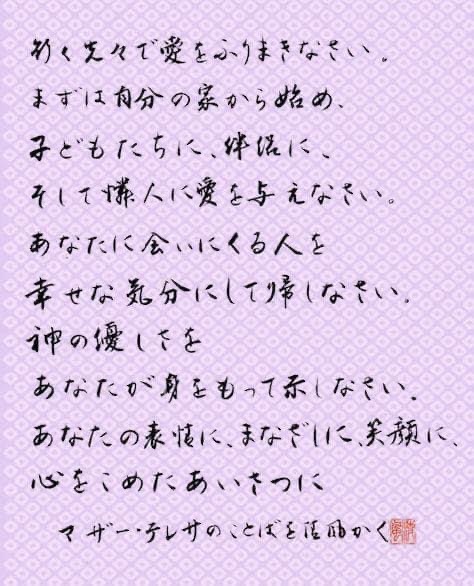 行く先々で愛をふりまきなさい。
まずは自分の家から始め、
子どもたちに、伴侶に、
そして隣人に愛を与えなさい。
あなたに会いにくる人を
幸せな気分にして帰しなさい。
神の優しさを
あなたが身をもって示しなさい。
あなたの表情に、まなざしに、笑顔に、
心をこめたあいさつに
マザー・テレサのことばを かく